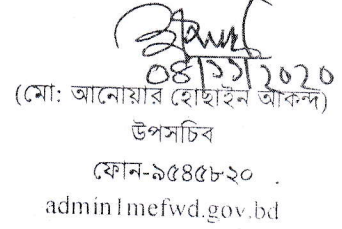 08/11/2020
(মো: আনোয়ার হোছাইন আকন্দ)
উপসচিব
ফোন-৯৫৪৫৮২০
admin1mefwd.gov.bd